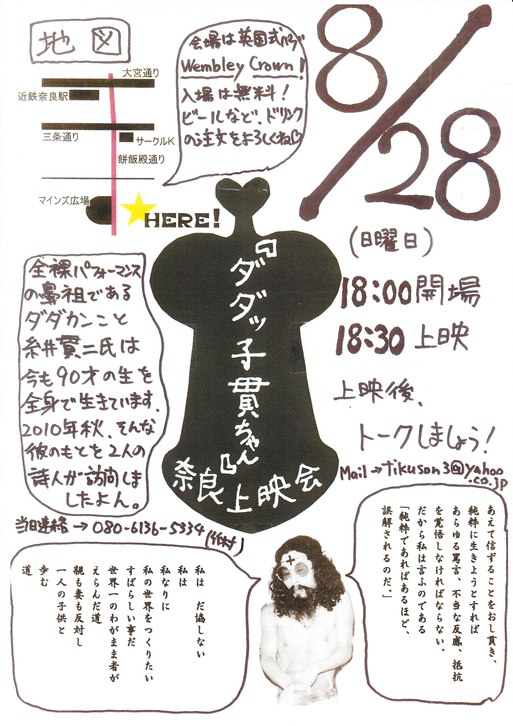 地図
大宮通り
近鉄奈良駅
三条通り
サークルK
餅飯殿通り
マインズ広場
HERE!
会場は英国式パブ
Wembley Crown!
入場は無料!
ビールなど、ドリンク
の注文をよろしくね
8/28
(日曜日)
18:00開場
18:30上映
上映後、
トークしましょう!
Mail→tikuson3@yahoo
.co.jp
『ダダッ子貫ちゃん』
奈良上映会
全裸パフォーマンス
の鼻祖である
ダダカンこと
糸井貫二氏は
今も90才の生を
全身で生きています。
2010年秋、そんな
彼のもとを2人の
詩人が訪問しま
したよん。
当日連絡→080-6136-5334
あえて信ずることをおし貫き、
純粋に生きようとすれば
あらゆる罵言、不当な反感、抵抗
を覚悟しなければならない。
だから私は言うのである
「純粋であればあるほど、
誤解されるのだ。」
私は だ協しない
私は
私なりに
私の世界をつくりたい
すばらしい事だ
世界一のわがまま者が
えらんだ道
親も妻も反対し
一人の子供と
歩む
道